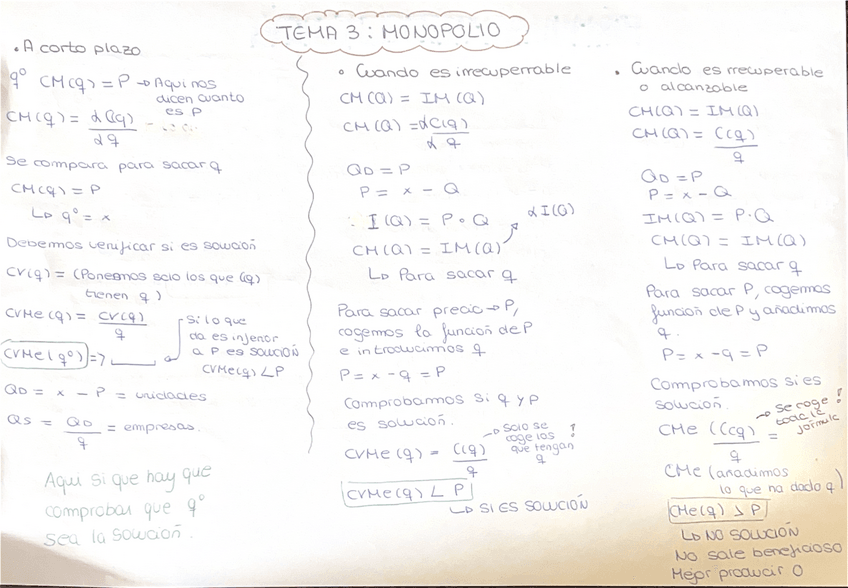 TEMA 3: MONOPOLIO
• A corto plazo
qº CM(q) = P → Aqui nos
dicen cuanto
es P
CM(q) = d C(q)
dq
Se compara para sacar q
CM(q) = P
↳ qº = x
Debemos verificar si es solución
CV(q) = (Ponemos solo los que
tienen q)
CVMe(q) = CV(q)
q
Si lo que
da es inferior
a P es solución
CVMe(q) < P
CVMe(qº) =>
QD = x - P = unidades
QS = QD = empresas.
q
Aqui si que hay que
comprobar que qº
sea la solución.
• Cuando es irrecuperrable
CM(Q) = IM(Q)
CM(Q) = dC(q)
d q
QD = P
P = x - Q
I(Q) = P • Q
d I(Q)
CM(Q) = IM(Q)
↳ Para sacar q
Para sacar precio → P,
cogemos la función de P
e introducimos q
P = x - q = P
Comprobamos si q y P
es solución.
→ solo se
coge los
que tengan
q !
CVMe(q) = C(q)
q
CVMe(q) < P
↳ SI ES SOLUCIÓN
• Cuando es rrecuperable
o alcanzable
CM(Q) = IM(Q)
CM(Q) = C(q)
q
QD = P
P = x - Q
IM(Q) = P·Q
CM(Q) = IM(Q)
↳ Para sacar q
Para sacar P, cogemos
funcion de P y añadimos
q.
P = x - q = P
Comprobamos si es
solución.
→ se coge !
toda la
formula
CMe (C(q) =
q
CMe (añadimos
lo que ha dado q)
CMe(q) > P
↳ NO SOLUCIÓN
No sale beneficioso
Mejor producir 0